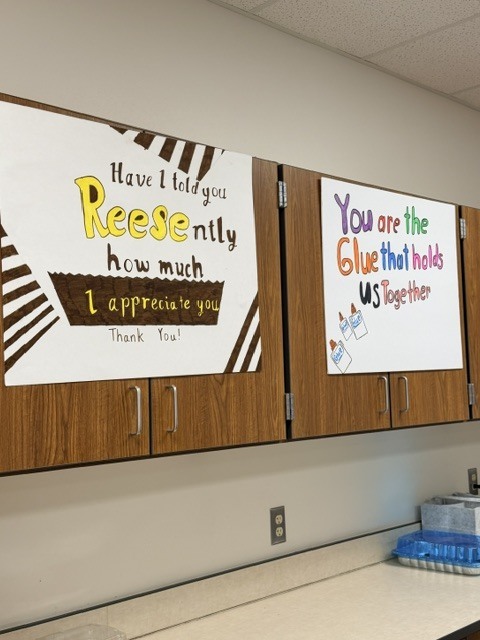 Have I told you
Reesently
how much
I appreciate you
Thank You!
You are the
Glue that holds
us Together